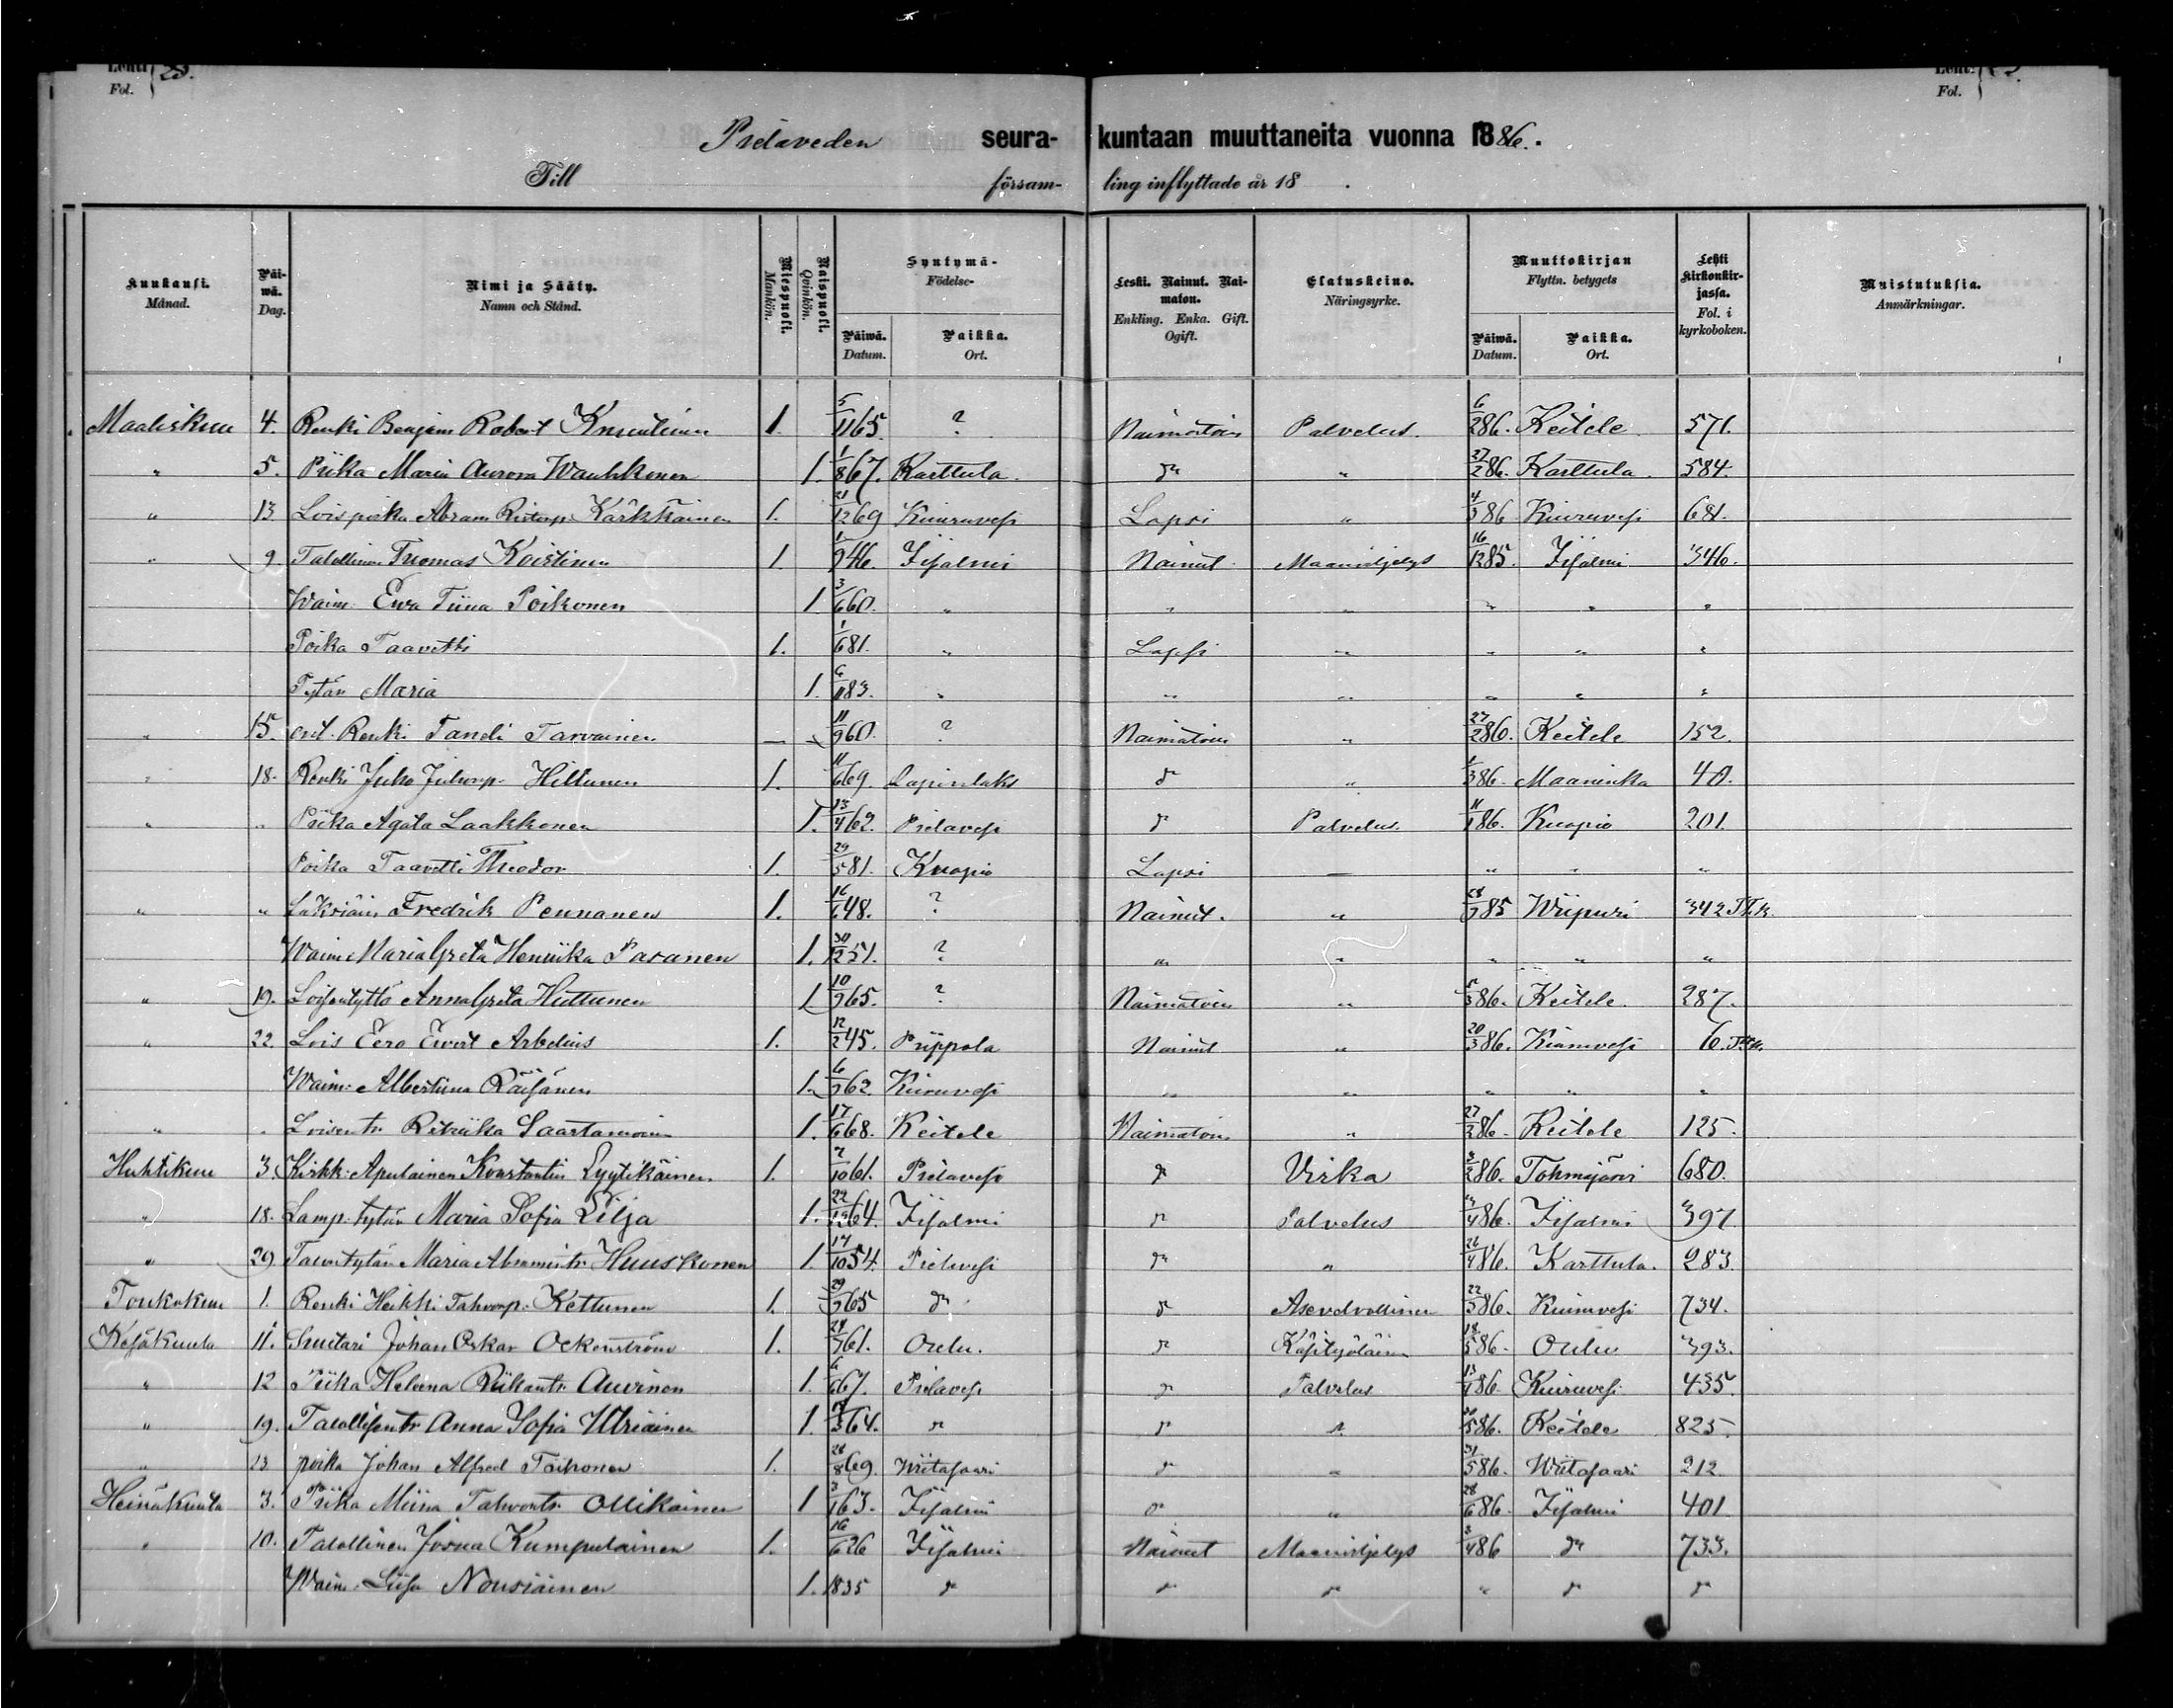 Lehti 23.
Fol.
Lehti
Fol.
Pielaveden seura- kuntaan muuttaneita vuonna 1886.
Till försam- ling inflyttade år 18 .
Kuukausi. Månad. Päi-wä. Dag. Nimi ja Sääty. Namn och Stånd. Miespuoli. Mankön. Naispuoli. Qvinkön. Syntymä- Födelse- Päiwä. Datum. Paikka. Ort. Leski. Nainut. Nai-maton. Enkling. Enka. Gift. Ogift. Elatuskeino. Näringsyrke. Muuttokirjan Flyttn. betygets Päiwä. Datum. Paikka. Ort. Lehti kirkonkir-jassa. Fol. i kyrkoboken. Muistutuksia. Anmärkningar.
Maaliskuu 4. Renki Benjam Robert Knuutinen 1. 5/11 65. ? Naimatoin Palvelus. 6/2 86. Keitele 571.
" 5. Piika Maria Aurora Wauhkonen 1. 1/8 67. Karttula. do " 27/2 86. Karttula. 584.
" 13. Loispoika Abram Ristonp. Kärkkäinen 1. 21/12 69 Kiuruvesi Lapsi " 4/3 86 Kiuruvesi 681.
" 9. Talollinen Tuomas Koistinen 1 1/9 46. Iisalmi Nainut Maanviljelys 16/12 85. Iisalmi 346.
Waim. Ewa Tiina Poikonen 1 3/6 60. " " " " " "
Poika Taavetti 1. 1/6 81. " Lapsi " " " "
Tytär Maria 1. 6/11 83. " " " " " "
" 15. ent. Renki Taneli Tarvainen — 11/9 60. ? Naimatoin " 27/2 86. Keitele 152.
" 18. Renki Juho Juhonp. Hiltunen 1. 11/6 69. Lapinlaks do " 1/3 86. Maaninka 40.
" " Piika Agata Laakkonen 1. 13/4 62. Pielavesi do Palvelus. 11/1 86. Kuopio 201.
Poika Taavetti Theodor 1. 29/5 81. Kuopio Lapsi — " " "
" " Fredrik Pennanen 1. 16/6 48. ? Nainut. " 28/7 85 Wiipuri 342 T.k.
Waim. Maria Greta Henriika Pasanen 1. 30/12 51. ? " " " " "
" 19. Loisentyttö Anna Greta Huttunen 1 10/9 65. ? Naimatoin " 5/3 86. Keitele. 287.
" 22. Lois Eero Ewert Arbelius 1. 12/2 45. Piippola Nainut " 20/3 86. Kiuruvesi 6.
Waim. Albertina Räisänen 1. 6/9 62. Kiuruvesi " " " " "
" " Loisentr. Riitriika Saastamoin 1. 17/6 68. Keitele Naimatoin " 27/2 86. Keitele 125.
Huhtikuu 3. Kirkk. Apulainen Konstantin Lyytikäinen 1. 7/10 61. Pielavesi do Virka 3/2 86. Tohmajärvi 680.
" 18. Lamp. tytär Maria Sofia Lilja 1. 22/12 64. Iisalmi do Palvelus /4 86. Iisalmi 397.
" 29. Maria Abramintr. Huuskonen 1. 14/10 54. Pielavesi do " 26/4 86. Karttula. 283.
Toukokuu 1. Renki Heikki Tahvonp. Kettunen 1. 29/9 65 do do Asevelvollinen 22/3 86. Kiuruvesi 734.
Kesäkuuta 11. Suutari Johan Oskar Ockenström 1. 28/7 61. Oulu. do Käsityöläin 18/5 86. Oulu 393.
" 12 Piika Helena Riikantr. Auvinen 1. 6/6 67. Pielavesi do Palvelus 13/1 86. Kiuruvesi 435.
" 19. Talollisentr. Anna Sofia Utriainen 1. /3 64. do do " 30/5 86. Keitele 825.
" 23 poika Johan Alfred Toikonen 1. 28/8 69. Wiitasaari do " 31/5 86. Wiitasaari 212.
Heinäkuuta 3. Piika Miina Tahvontr. Ollikainen 1 3/1 63. Iisalmi do " 28/6 86. Iisalmi 401
" 10. Talollinen Josua Kumpulainen 1. 16/6 26 Iisalmi Nainut Maanviljelys 3/4 86 do 733.
Waim. Liisa Nousiainen 1. 1835 do do do " do do